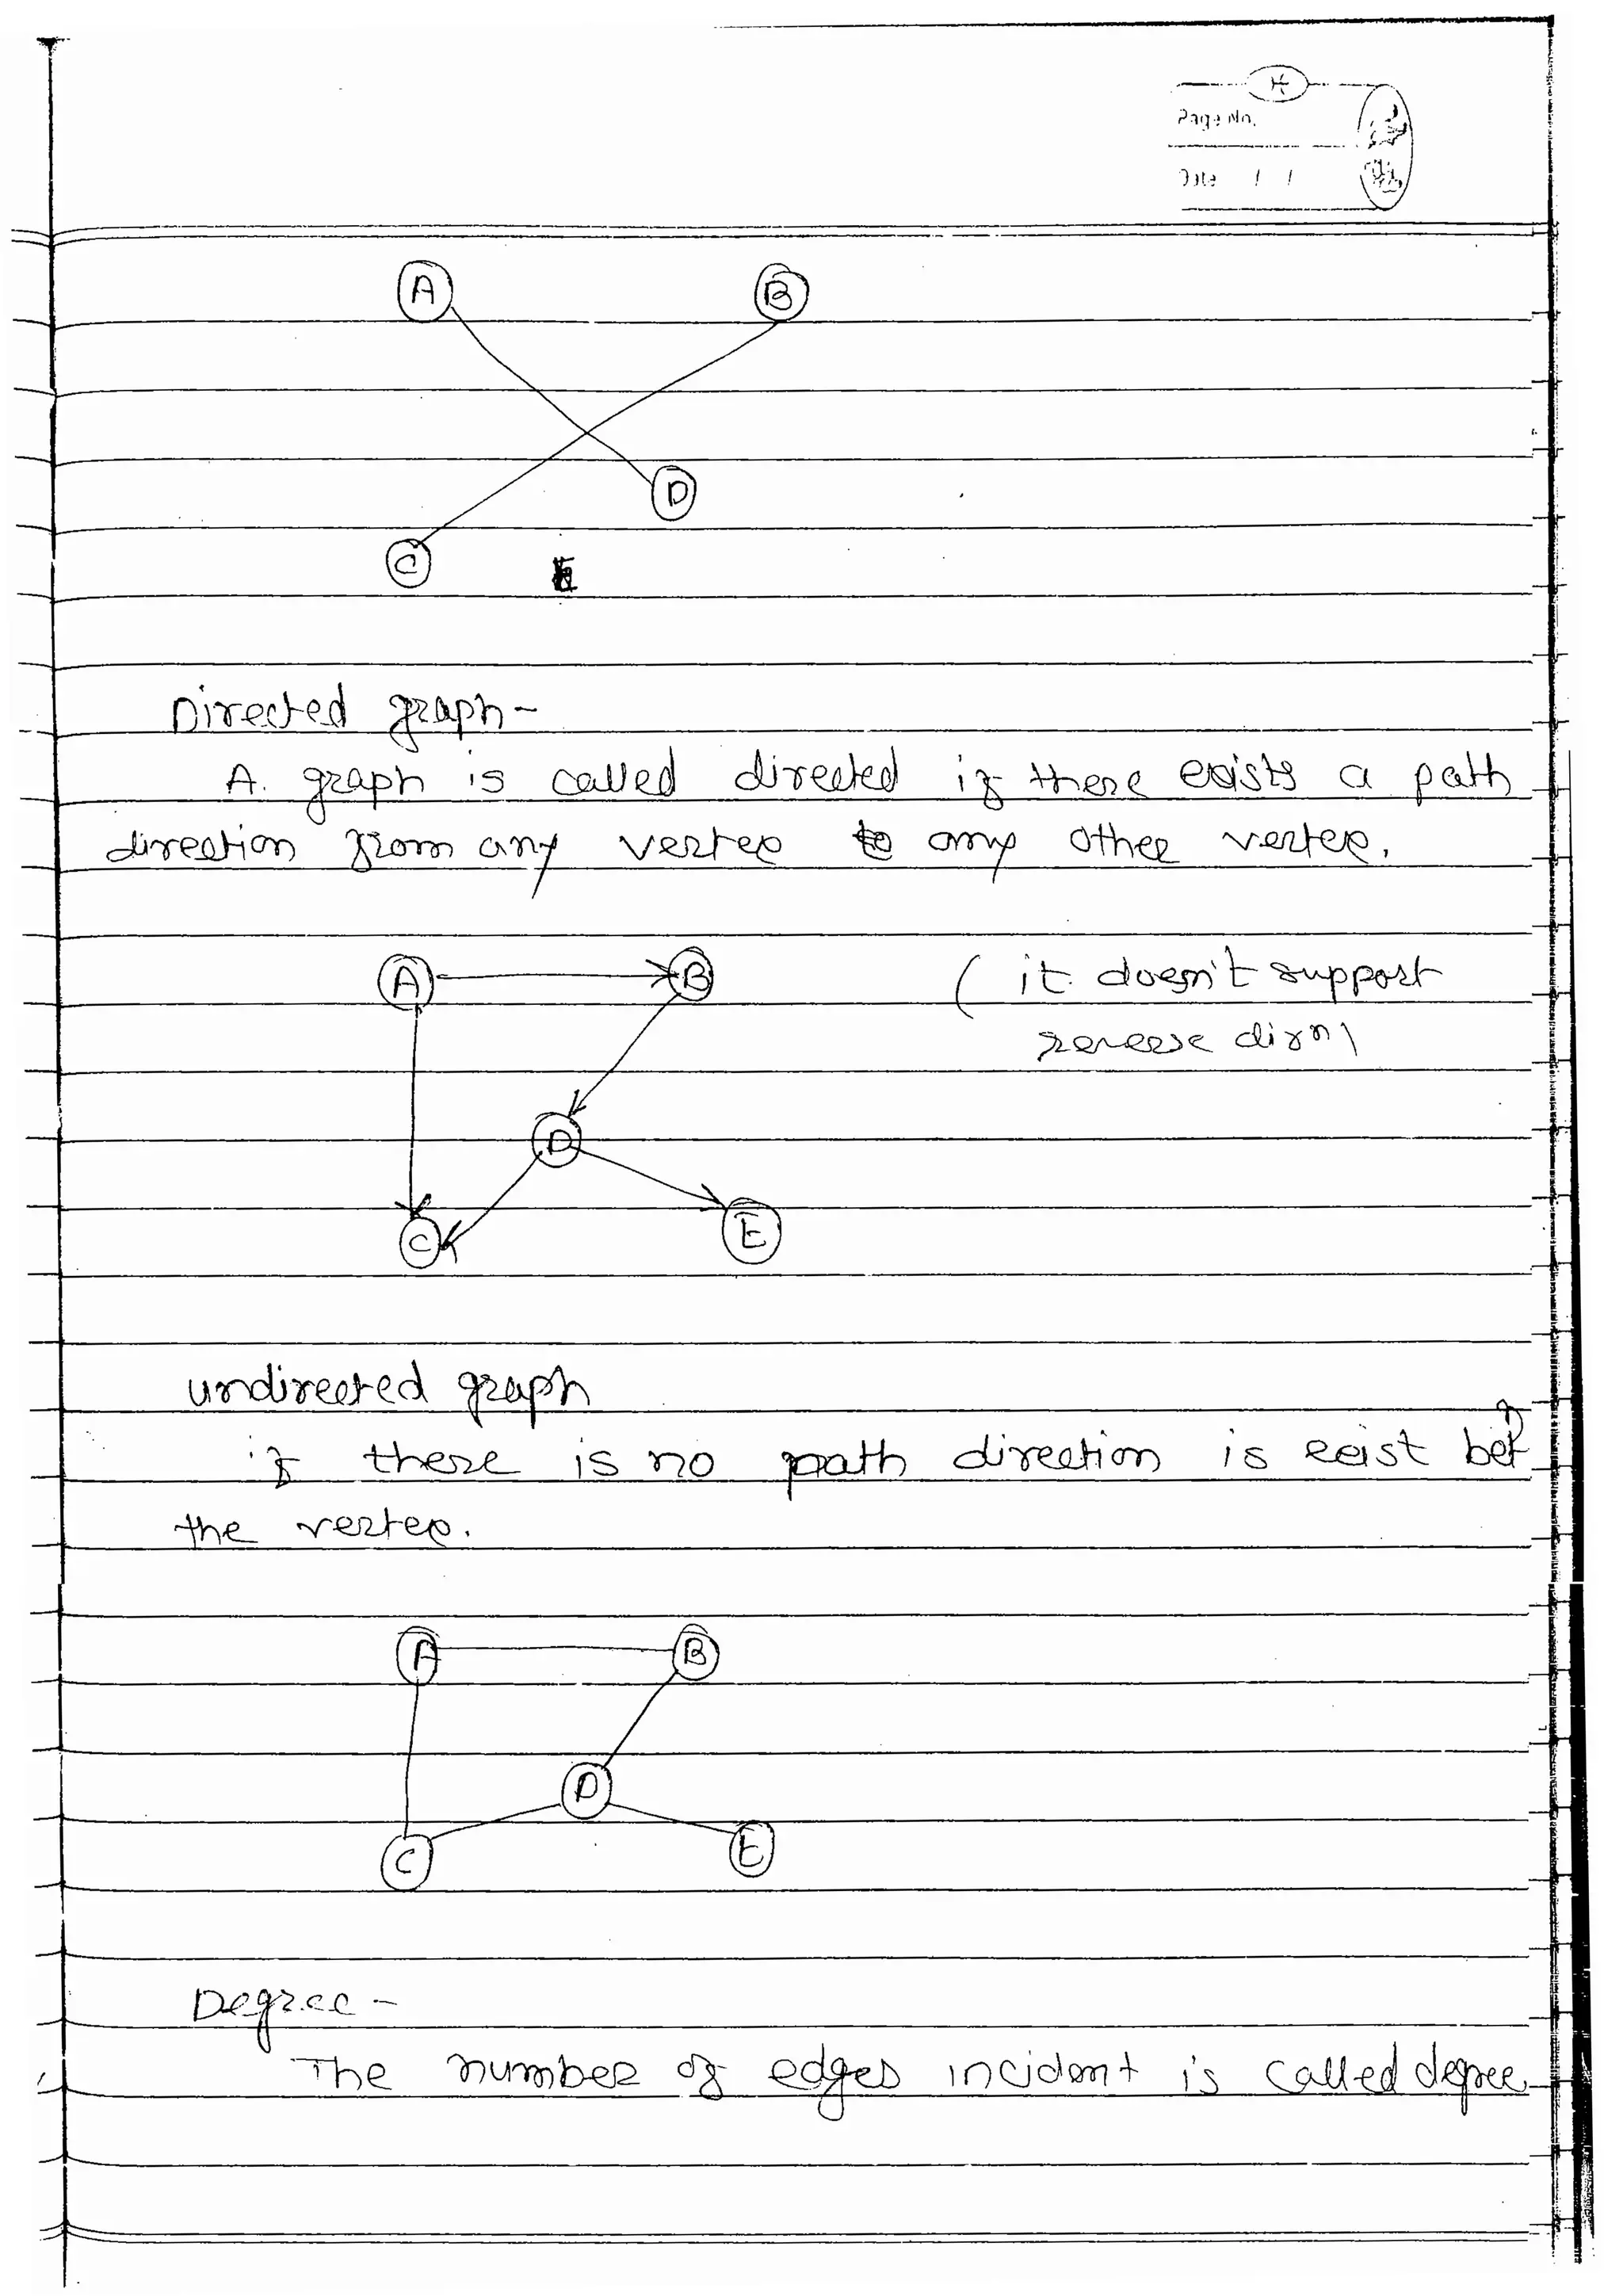 Page No.
Date / /
A B
D
C
Directed graph-
A graph is called directed if there exists a path
direction from any vertex to any other vertex.
A B ( it doesn't support
reverse dirn)
D
C E
undirected graph
if there is no path direction is exist betn
the vertex.
A B
D
C E
Degree -
The number of edges incident is called degree